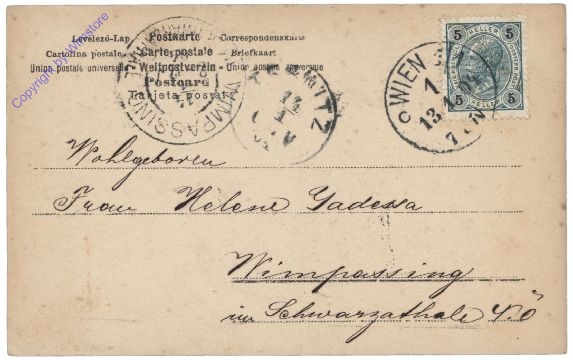 Copyright by Wienstore
Levelező-Lap Postkarte Correspondenzkarte
Cartolina postale Carte postale Briefkaart
Union postale universelle Weltpostverein Union postale universelle
Postcard
Tarjeta postal
WIMPASSING
TERNITZ
14
WIEN
1
13
7
5 HELLER 5
5 HELLER 5
Wohlgeboren
Frau Helene Gadessa
Wimpassing
im Schwarzathale NÖ